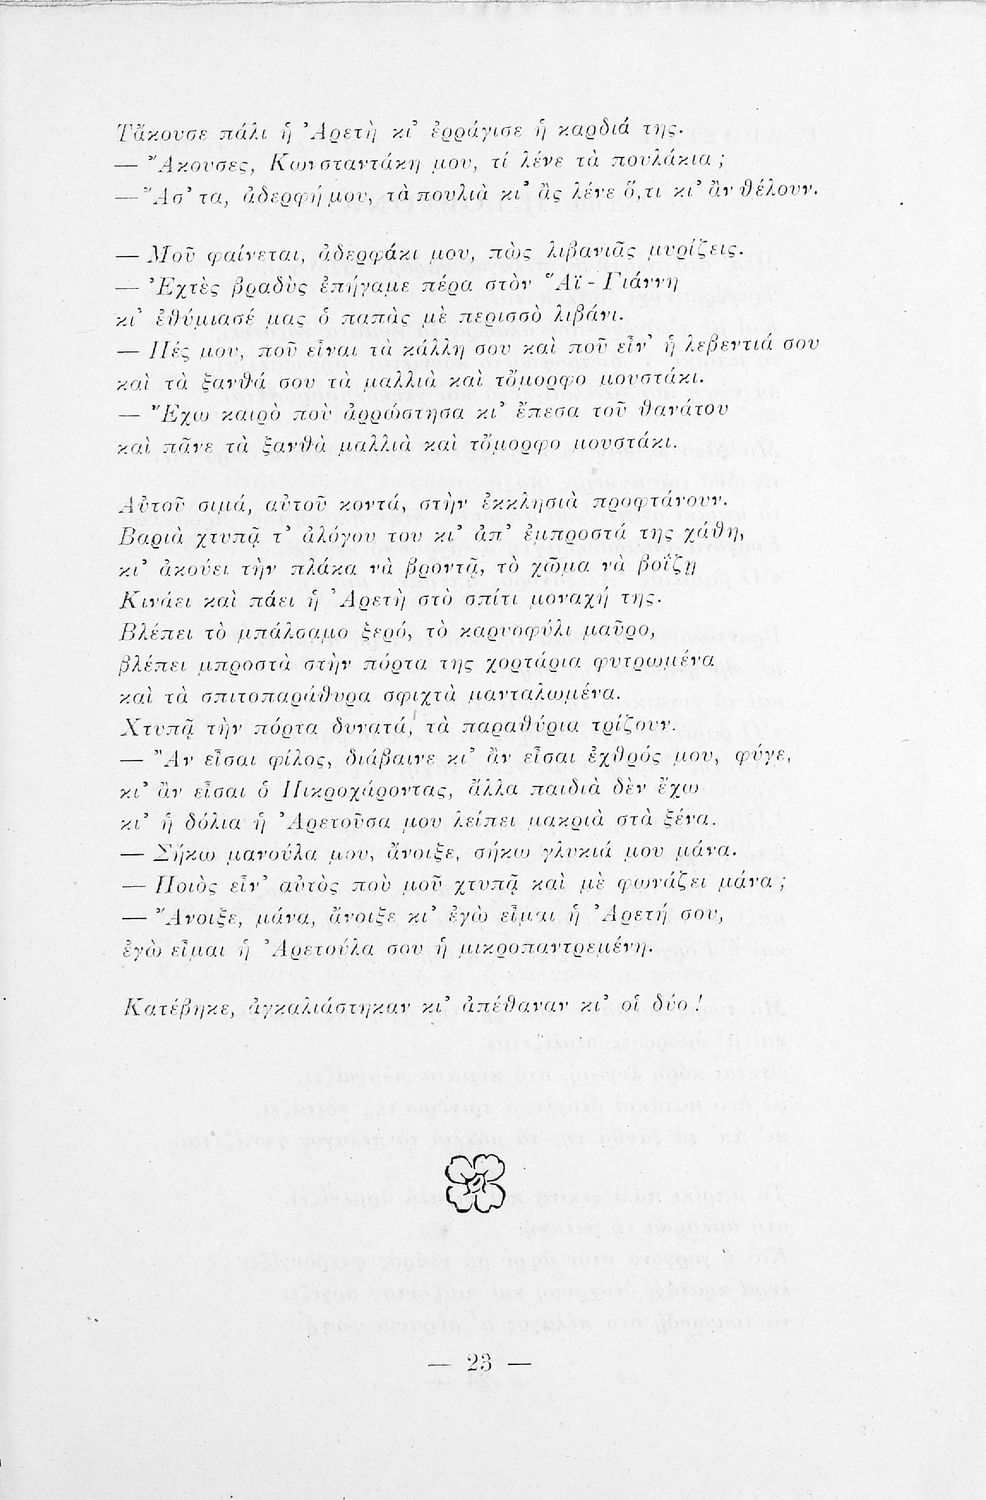 Τἄκουσε πάλι ἡ Ἀρετὴ κι’ ἐρράγισε ἡ καρδιά της.
— Ἄκουσες, Κωνσταντάκη μου, τί λένε τὰ πουλάκια ;
— Ἄσ’ τα, ἀδερφή μου, τὰ πουλιὰ κι’ ἂς λένε ὅ,τι κι’ ἂν θέλουν.
— Μοῦ φαίνεται, ἀδερφάκι μου, πὼς λιβανιᾶς μυρίζεις.
— Ἐχτὲς βραδὺς ἐπήγαμε πέρα στὸν Ἅϊ - Γιάννη
κι’ ἐθύμιασέ μας ὁ παπὰς μὲ περισσὸ λιβάνι.
— Πές μου, ποῦ εἶναι τὰ κάλλη σου καὶ ποῦ εἶν’ ἡ λεβεντιά σου
καὶ τὰ ξανθά σου τὰ μαλλιὰ καὶ τὄμορφο μουστάκι.
— Ἔχω καιρὸ ποὺ ἀρρώστησα κι’ ἔπεσα τοῦ θανάτου
καὶ πᾶνε τὰ ξανθὰ μαλλιὰ καὶ τὄμορφο μουστάκι.
Αὐτοῦ σιμά, αὐτοῦ κοντά, στὴν ἐκκλησιὰ προφτάνουν.
Βαριὰ χτυπᾷ τ’ ἀλόγου του κι’ ἀπ’ ἐμπροστά της χάθη,
κι’ ἀκούει τὴν πλάκα νὰ βροντᾷ, τὸ χῶμα νὰ βοΐζῃ
Κινάει καὶ πάει ἡ Ἀρετὴ στὸ σπίτι μοναχή της.
Βλέπει τὸ μπάλσαμο ξερό, τὸ καρυοφύλι μαῦρο,
βλέπει μπροστὰ στὴν πόρτα της χορτάρια φυτρωμένα
καὶ τὰ σπιτοπαράθυρα σφιχτὰ μανταλωμένα.
Χτυπᾷ τὴν πόρτα δυνατά, τὰ παραθύρια τρίζουν.
— Ἂν εἶσαι φίλος, διάβαινε κι’ ἂν εἶσαι ἐχθρός μου, φύγε,
κι’ ἂν εἶσαι ὁ Πικροχάροντας, ἄλλα παιδιὰ δὲν ἔχω
κι’ ἡ δόλια ἡ Ἀρετοῦσα μου λείπει μακριὰ στὰ ξένα.
— Σήκω μανούλα μου, ἄνοιξε, σήκω γλυκιά μου μάνα.
— Ποιὸς εἶν’ αὐτὸς ποὺ μοῦ χτυπᾷ καὶ μὲ φωνάζει μάνα ;
— Ἄνοιξε, μάνα, ἄνοιξε κι’ ἐγὼ εἶμαι ἡ Ἀρετή σου,
ἐγὼ εἶμαι ἡ Ἀρετούλα σου ἡ μικροπαντρεμένη.
Κατέβηκε, ἀγκαλιάστηκαν κι’ ἀπέθαναν κι’ οἱ δύο !
— 23 —